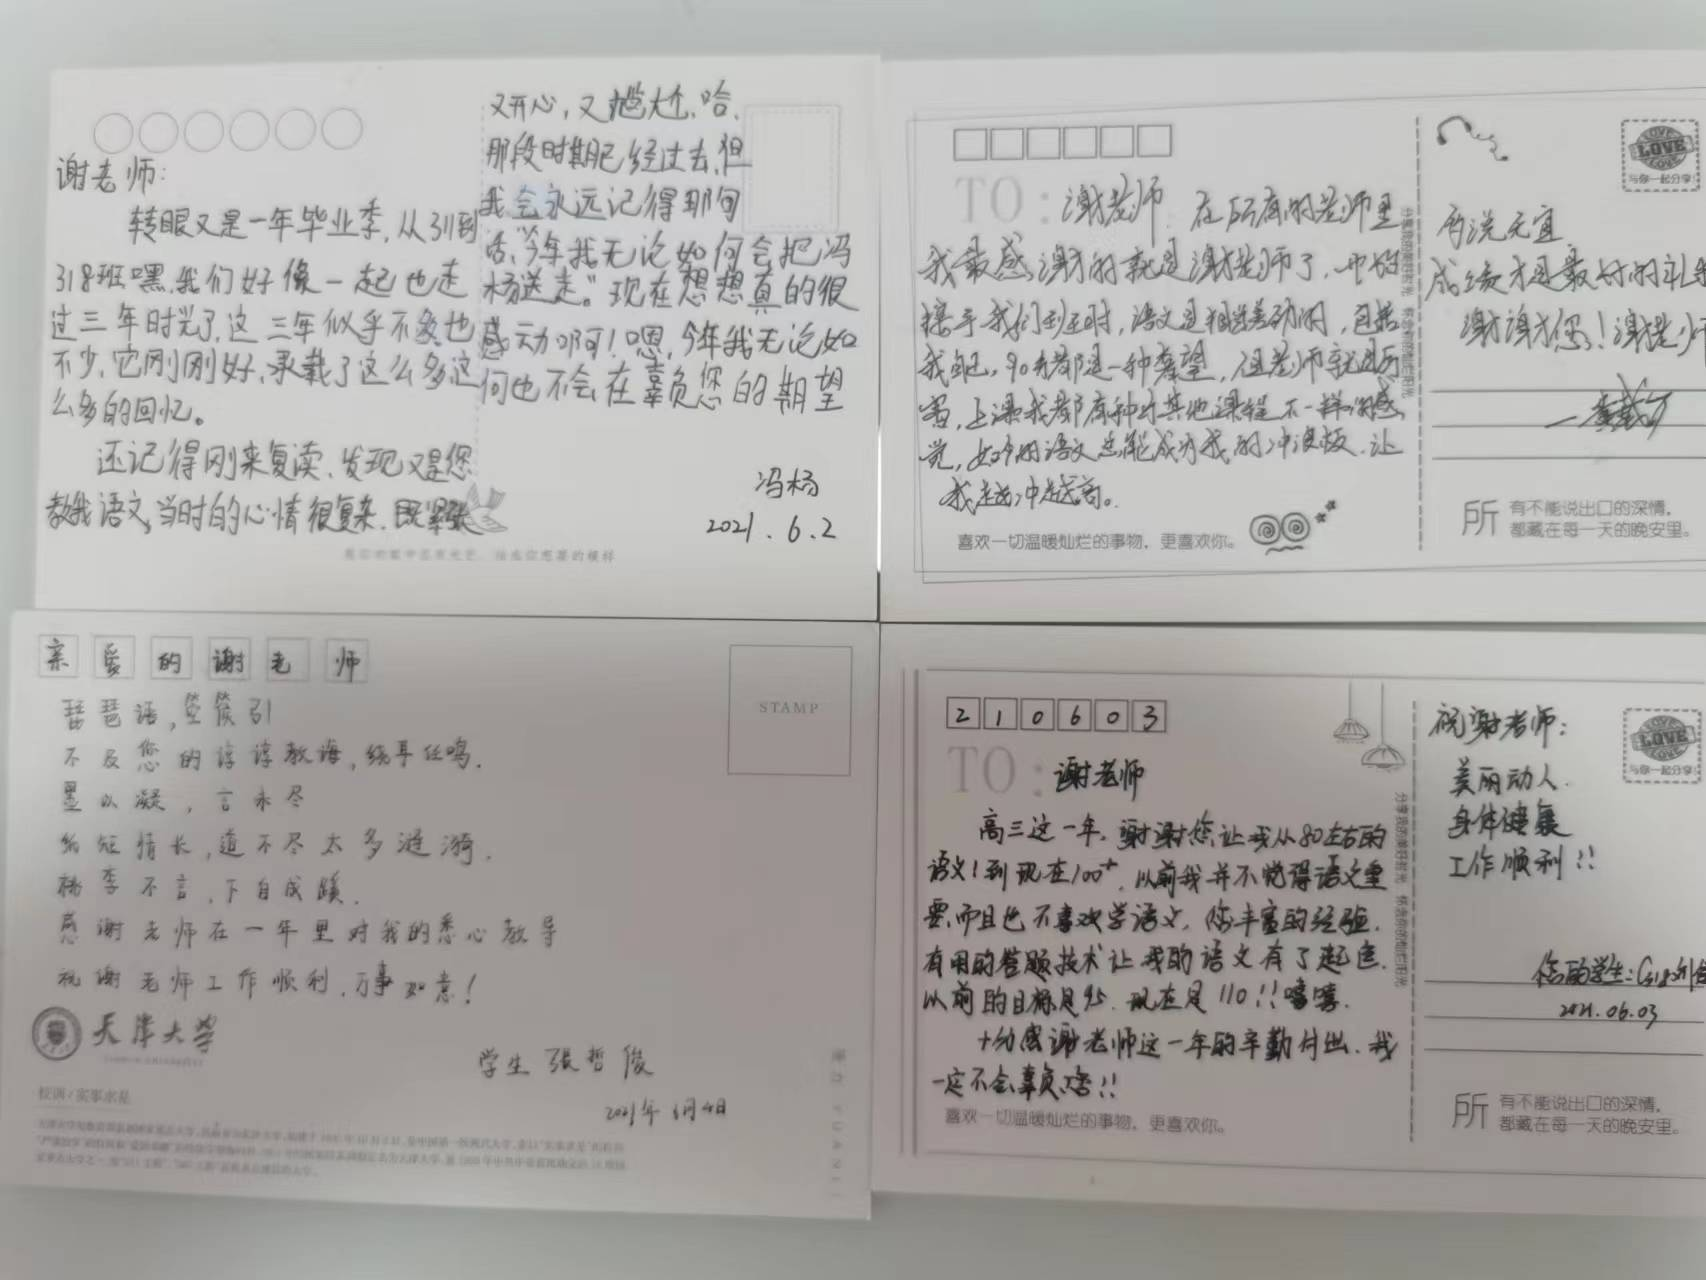 谢老师:
转眼又是一年毕业季,从311到
318班嘿,我们好像一起也走
过三年时光了,这三年似乎不多也
不少,它刚刚好,承载了这么多这
么多的回忆。
还记得刚来复读、发现又是您
教我语文,当时的心情很复杂,既紧张
又开心,又尴尬、哈,
那段时期已经过去,但
我会永远记得那句
话,"今年我无论如何会把冯
杨送走"。现在想想真的很
感动啊!嗯,今年我无论如
何也不会在辜负您的期望
冯杨
2021.6.2
TO:谢老师 在所有的老师里
我最感谢的就是谢老师了,
接手我们到至时,语文是相当差劲的,包括
我自己,90分都是一种奢望,但老师
上课我都有种与其他课程不一样的感
觉,如今的语文总能成为我的冲浪板,让
我越冲越高。
喜欢一切温暖灿烂的事物,更喜欢你。
分享我的美好时光 怀念你的灿烂阳光
LOVE
与你一起分享
再说无宜
成绩才是最好的礼
谢谢您!谢老师
所有不能说出口的深情,
都藏在每一天的晚安里。
亲爱的谢老师
STAMP
琵琶语,箜篌引
不及您的谆谆教诲,绕耳任鸣.
墨以凝,言未尽
纸短情长,道不尽太多涟漪.
桃李不言,下自成蹊.
感谢老师在一年里对我的悉心教导
祝谢老师工作顺利,万事如意!
天津大学
校训/实事求是
学生 張哲俊
2021年6月4日
210603
TO:谢老师
高三这一年,谢谢您让我从80左右的
语文!到现在100+,以前我并不觉得语文重
要,而且也不喜欢学语文,您丰富的经验,
有用的答题技术让我的语文有了起色,
以前的目标是95,现在是110!!嘻嘻.
十分感谢老师这一年的辛勤付出,我
一定不会辜负您!!
喜欢一切温暖灿烂的事物,更喜欢你。
分享我的美好时光 怀念你的灿烂阳光
LOVE
与你一起分享
祝谢老师:
美丽动人.
身体健康
工作顺利!!
您的学生:
2021.06.03
所有不能说出口的深情,
都藏在每一天的晚安里。